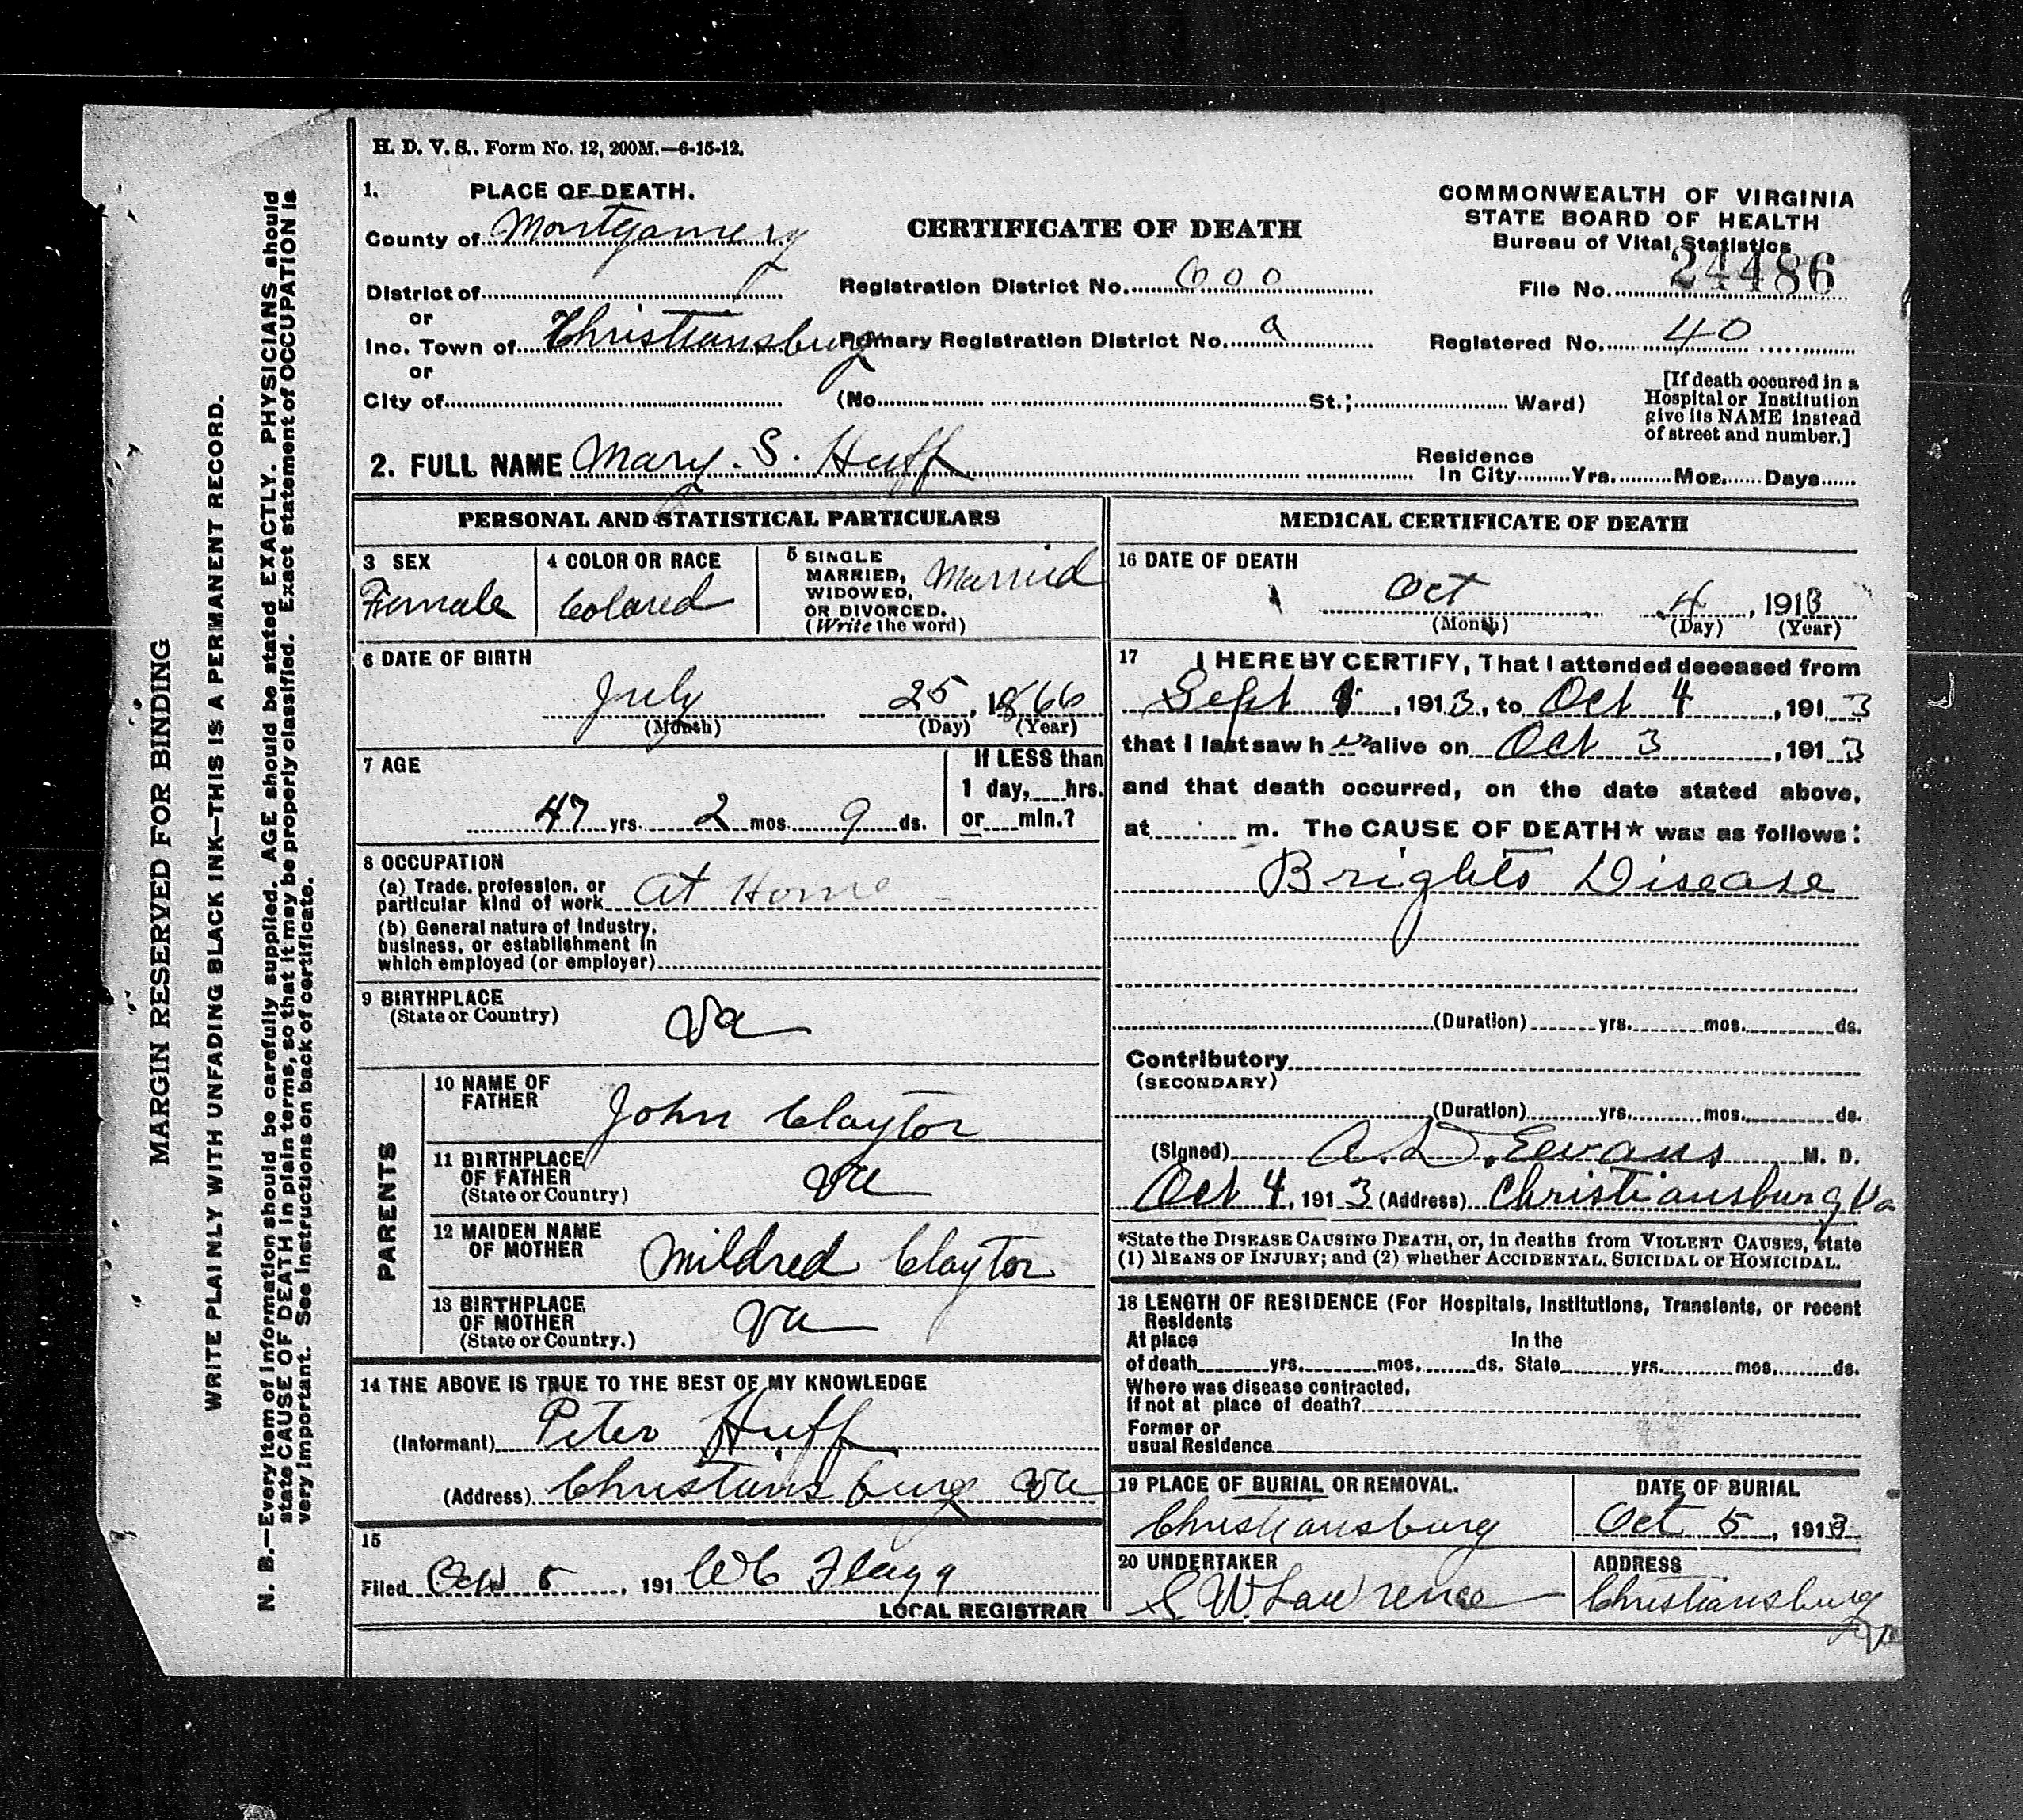 H. D. V. S.. Form No. 12, 200M.—6-15-12.
1. PLACE OF DEATH.
County of Montgomery
District of
or
Inc. Town of Christiansburg
or
City of
CERTIFICATE OF DEATH
Registration District No. 600
Primary Registration District No. a
(No. St.; Ward)
COMMONWEALTH OF VIRGINIA
STATE BOARD OF HEALTH
Bureau of Vital Statistics
File No. 24486
Registered No. 40
[If death occured in a
Hospital or Institution
give its NAME instead
of street and number.]
2. FULL NAME Mary. S. Huff
Residence
In City Yrs. Mos. Days
PERSONAL AND STATISTICAL PARTICULARS
3 SEX
Female
4 COLOR OR RACE
Colared
5 SINGLE
MARRIED,
WIDOWED,
OR DIVORCED.
(Write the word)
Married
6 DATE OF BIRTH
July 25, 1866
(Month) (Day) (Year)
7 AGE
47 yrs. 2 mos. 9 ds.
If LESS than
1 day, hrs.
or min.?
8 OCCUPATION
(a) Trade, profession, or
particular kind of work at Home
(b) General nature of Industry,
business, or establishment in
which employed (or employer)
9 BIRTHPLACE
(State or Country)
Va
PARENTS
10 NAME OF
FATHER
John Claytor
11 BIRTHPLACE
OF FATHER
(State or Country)
Va
12 MAIDEN NAME
OF MOTHER
Mildred Claytor
13 BIRTHPLACE
OF MOTHER
(State or Country.)
Va
14 THE ABOVE IS TRUE TO THE BEST OF MY KNOWLEDGE
(Informant) Peter Huff
(Address) Christiansburg Va
15
Filed Oct 5, 191 WC Flagg
LOCAL REGISTRAR
MEDICAL CERTIFICATE OF DEATH
16 DATE OF DEATH
Oct 4, 1913
(Month) (Day) (Year)
17 I HEREBY CERTIFY, That I attended deceased from
Sept 1, 1913, to Oct 4, 1913
that I last saw her alive on Oct 3, 1913
and that death occurred, on the date stated above,
at m. The CAUSE OF DEATH* was as follows:
Brights Disease
(Duration) yrs. mos. ds.
Contributory
(SECONDARY)
(Duration) yrs. mos. ds.
(Signed) A. D. Ewans M. D.
Oct 4, 1913 (Address) Christiansburg Va
*State the DISEASE CAUSING DEATH, or, in deaths from VIOLENT CAUSES, state
(1) MEANS OF INJURY; and (2) whether ACCIDENTAL, SUICIDAL or HOMICIDAL.
18 LENGTH OF RESIDENCE (For Hospitals, Institutions, Transients, or recent
Residents
At place In the
of death yrs. mos. ds. State yrs. mos. ds.
Where was disease contracted,
If not at place of death?
Former or
usual Residence
19 PLACE OF BURIAL OR REMOVAL.
Christiansburg
DATE OF BURIAL
Oct 5, 1913
20 UNDERTAKER
S W Lawrence
ADDRESS
Christiansburg
Va
MARGIN RESERVED FOR BINDING
WRITE PLAINLY WITH UNFADING BLACK INK—THIS IS A PERMANENT RECORD.
N. B.—Every item of information should be carefully supplied. AGE should be stated EXACTLY. PHYSICIANS should
state CAUSE OF DEATH in plain terms, so that it may be properly classified. Exact statement of OCCUPATION is
very important. See instructions on back of certificate.